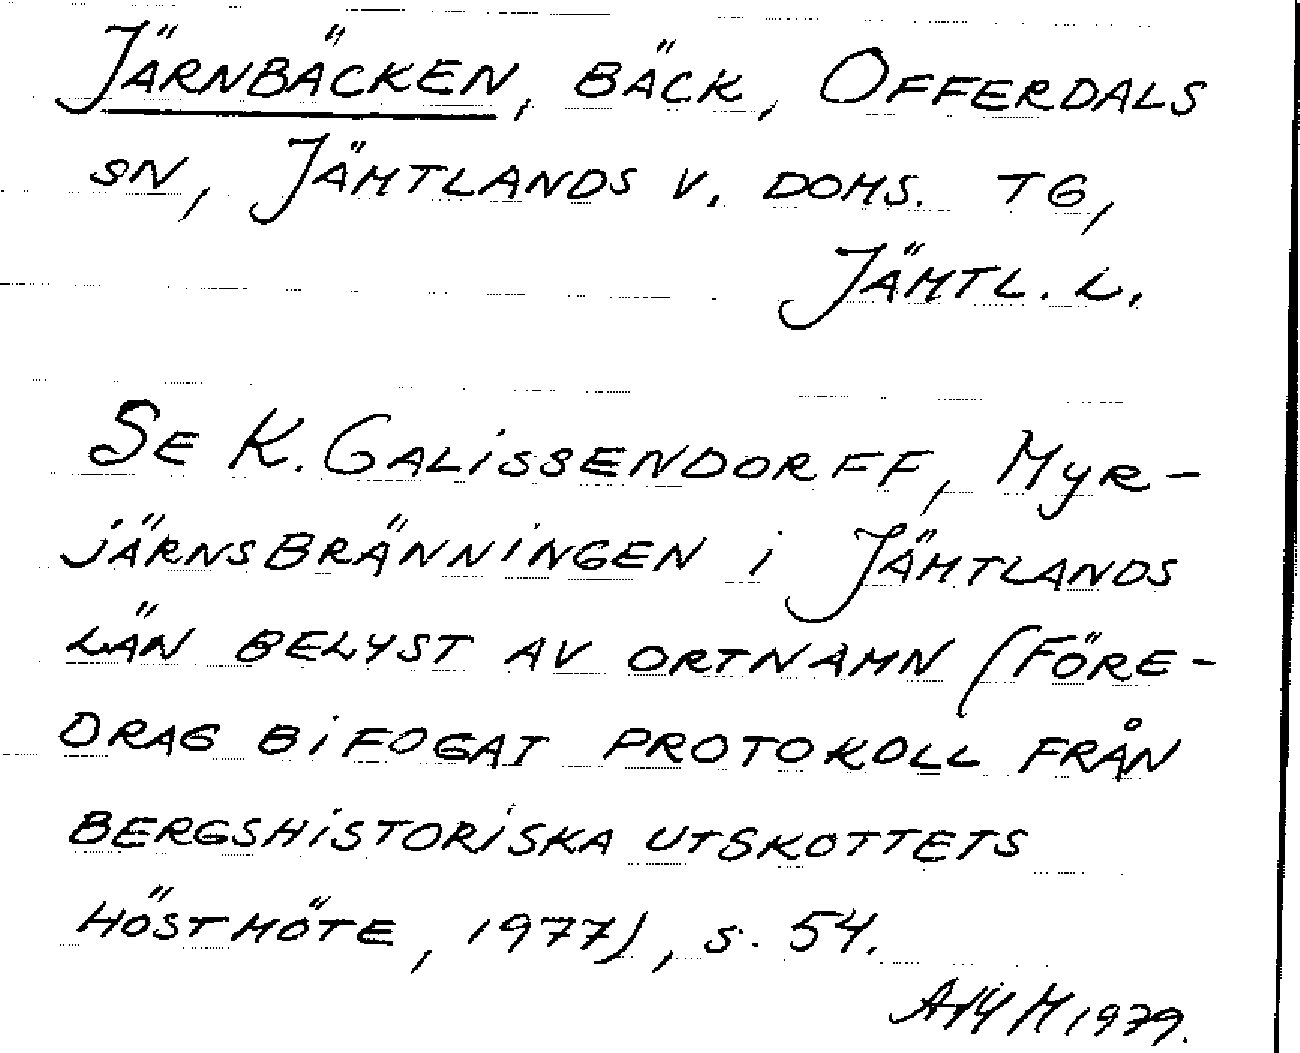 Järnbäcken, bäck, Offerdals
sn, Jämtlands v. doms. tg,
Jämtl. l.
Se K. Galissendorff, Myr-
järnsbränningen i Jämtlands
län belyst av ortnamn (Före-
drag bifogat protokoll från
bergshistoriska utskottets
höstmöte, 1977), s. 54.
1979.